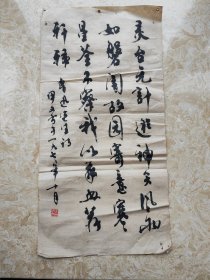 灵台无计逃神矢风雨
如磐闇故园寄意寒
星荃不察我以我血荐
轩辕
鲁迅先生诗
一九七年十月